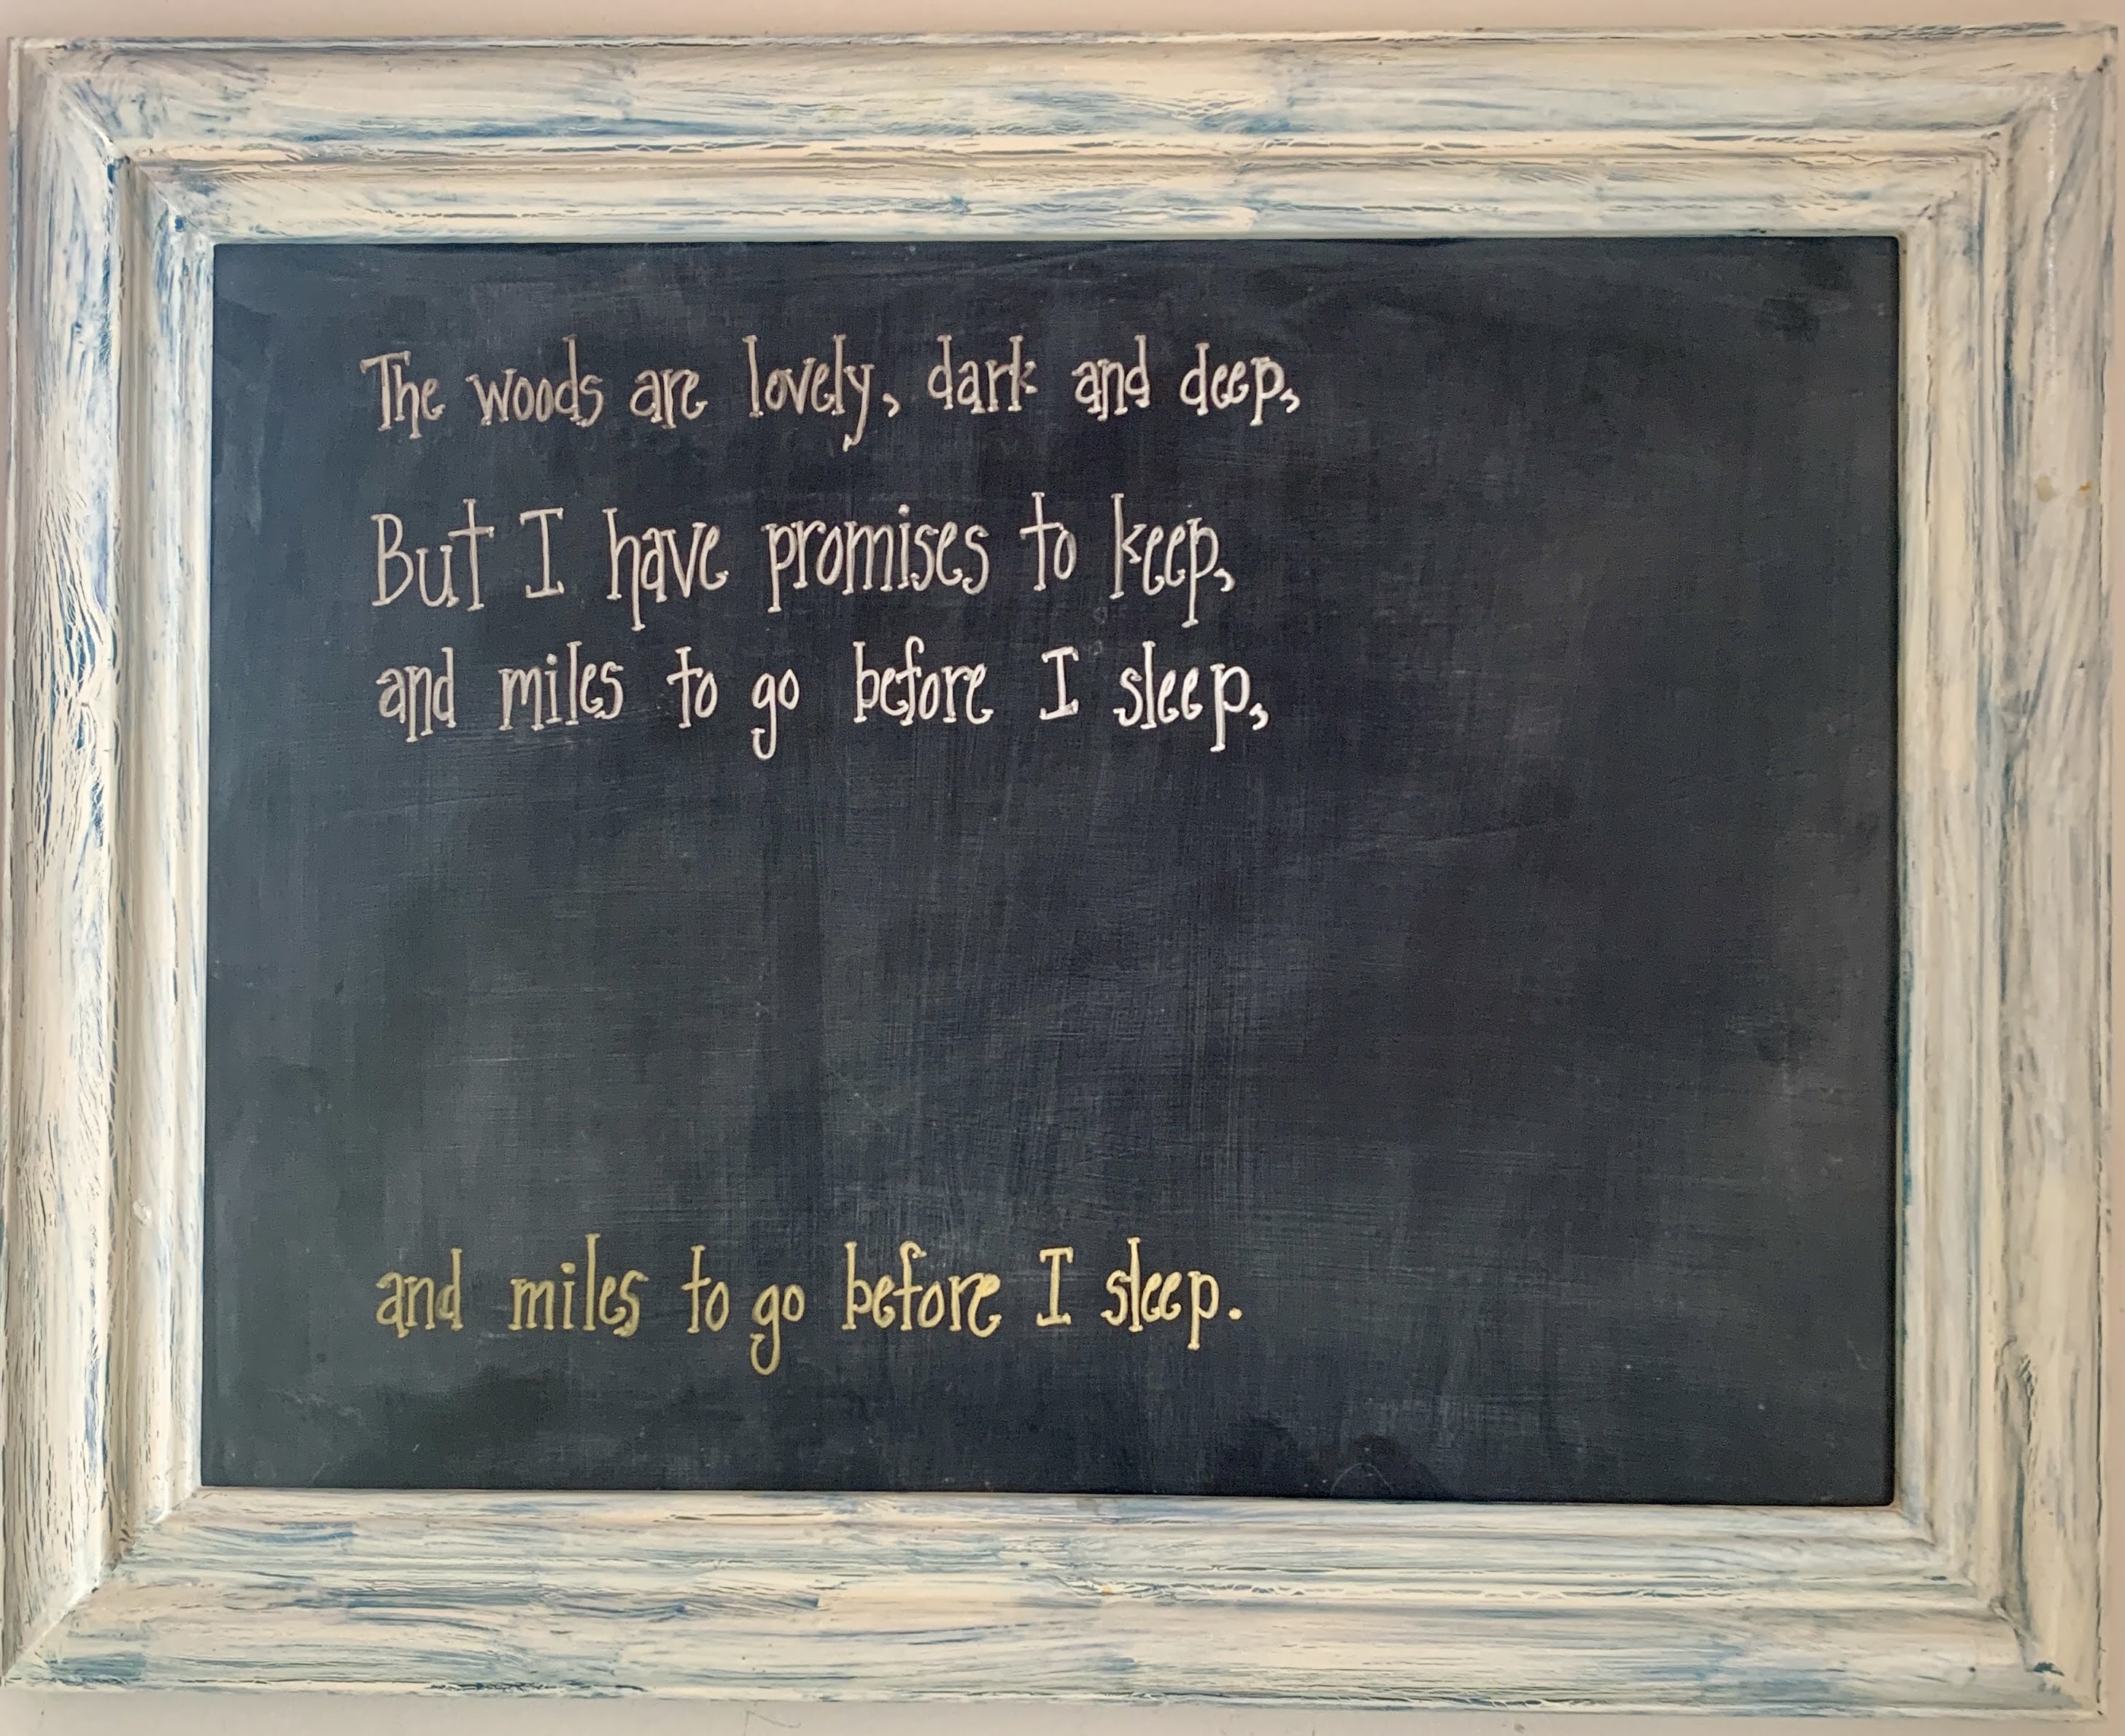 The woods are lovely, dark and deep,
But I have promises to keep,
and miles to go before I sleep,
and miles to go before I sleep.